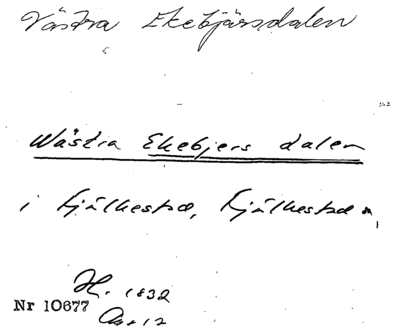 Västra Ekebjärsdalen
Wästra Ekebjers dalen
i Fjälkestad, Fjälkestad s,
H. 1832
Nr 10677